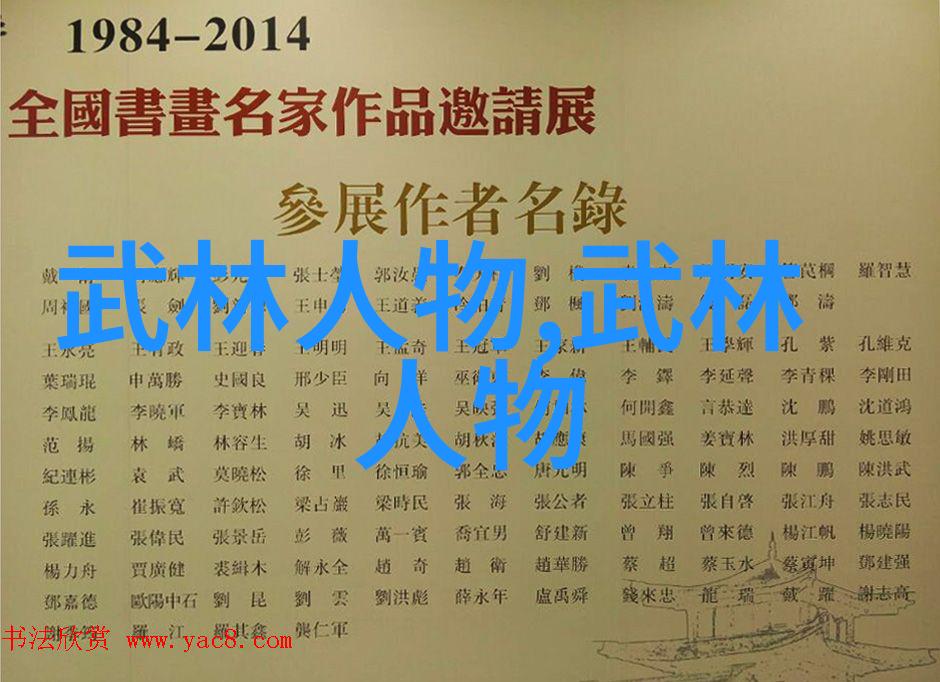 1984-2014
全國書畫名家作品邀請展
參展作者名錄
武林人物,武林
人物
張士瑩 劉 羅智慧
王申 王道 鄧 濤
王永亮 王明明 王孟奇 王輔 王學輝 孔 紫 孔維克
葉瑞琨 申萬勝 史國良 邢少臣 向 李 鐸 李延聲 李青稞 李剛田
李鳳龍 李曉軍 李寶林 吳 迅 何開鑫 言恭達 沈 鵬 沈道鴻
范 揚 林 嶠 林容生 胡 冰 馬國强 姜寶林 洪厚甜 姚思敏
紀連彬 袁 武 莫曉松 徐 里 徐恒瑜 郭全忠 唐允明 陳 爭 陳 烈 陳 鵬 陳洪武
孫 永 崔振寬 許欽松 梁占巖 梁時民 張 海 張公者 張立柱 張自啓 張江舟 張志民
張躍進 張偉民 張景岳 彭 薇 萬一賓 喬宜男 舒建新 曾 翔 曾來德 楊江帆 楊曉陽
楊力舟 賈廣健 裘緝木 解永全 趙 奇 趙 衛 趙華勝 蔡 超 蔡玉水 蔡寅坤 鄧建强
鄧嘉德 歐陽中石 劉 昆 劉 雲 劉洪彪 薛永年 盧禹舜 錢來忠 龍 瑞 戴 躍 謝志高
羅 江 羅其鑫 龔仁軍
书法欣赏 www.yac8.com